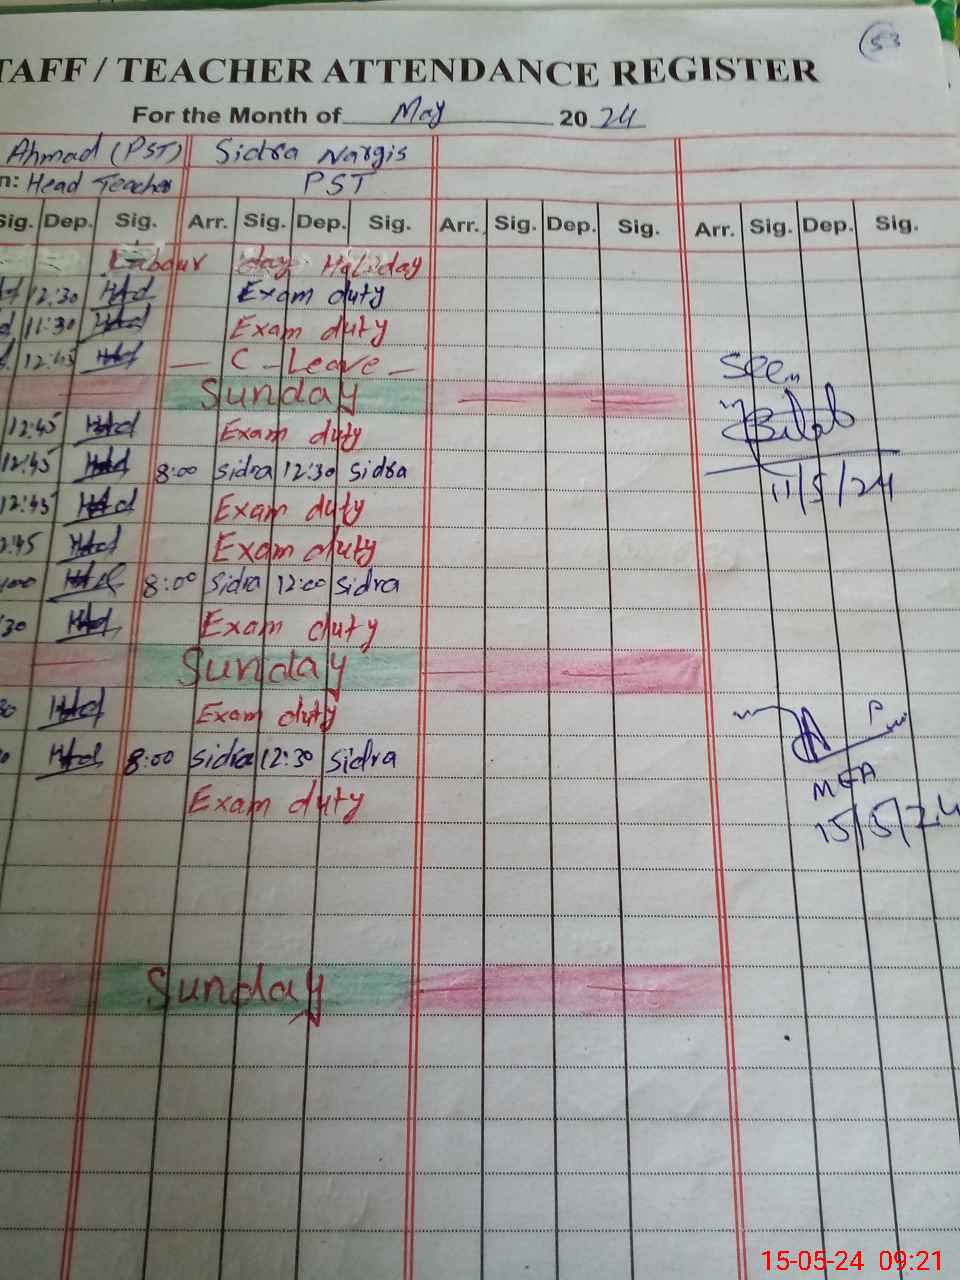 53
TAFF / TEACHER ATTENDANCE REGISTER
For the Month of May 2024
Ahmad (PST) Sidra Nargis
n: Head Teacher PST
Sig. Dep. Sig. Arr. Sig. Dep. Sig. Arr. Sig. Dep. Sig. Arr. Sig. Dep. Sig.
Labour day Holiday
12:30 Exam duty
11:30 Exam duty
12:45 — C - Leave —
Sunday
12:45 Exam duty
12:45 8:00 Sidra 12:30 Sidra
12:45 Exam duty
2:45 Exam duty
8:00 Sidra 12:00 Sidra
30 Exam duty
Sunday
30 Exam duty
0 8:00 Sidra 12:30 Sidra
Exam duty
Sunday
Seen
11/5/24
MEA
15/5/24
15-05-24 09:21